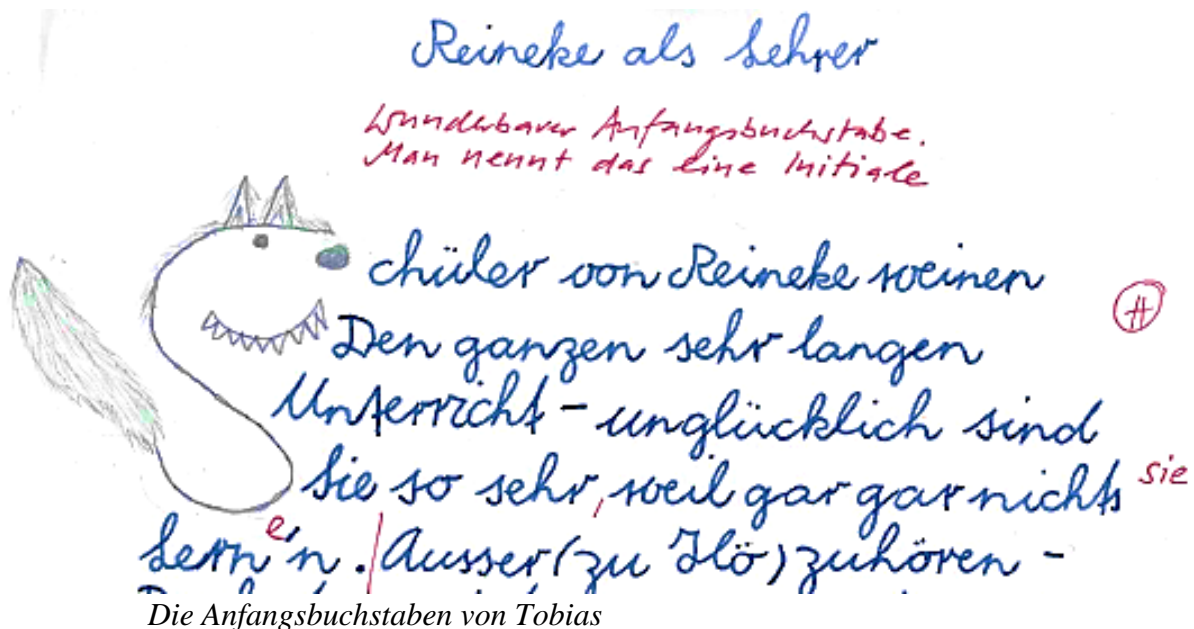 Reineke als Lehrer
Wunderbarer Anfangsbuchstabe.
Man nennt das eine Initiale
chüler von Reineke weinen
Den ganzen sehr langen
Unterricht - unglücklich sind
Sie so sehr, weil gar gar nichts sie
Lern'n. e Ausser (zu Hö) zuhören -
Die Anfangsbuchstaben von Tobias